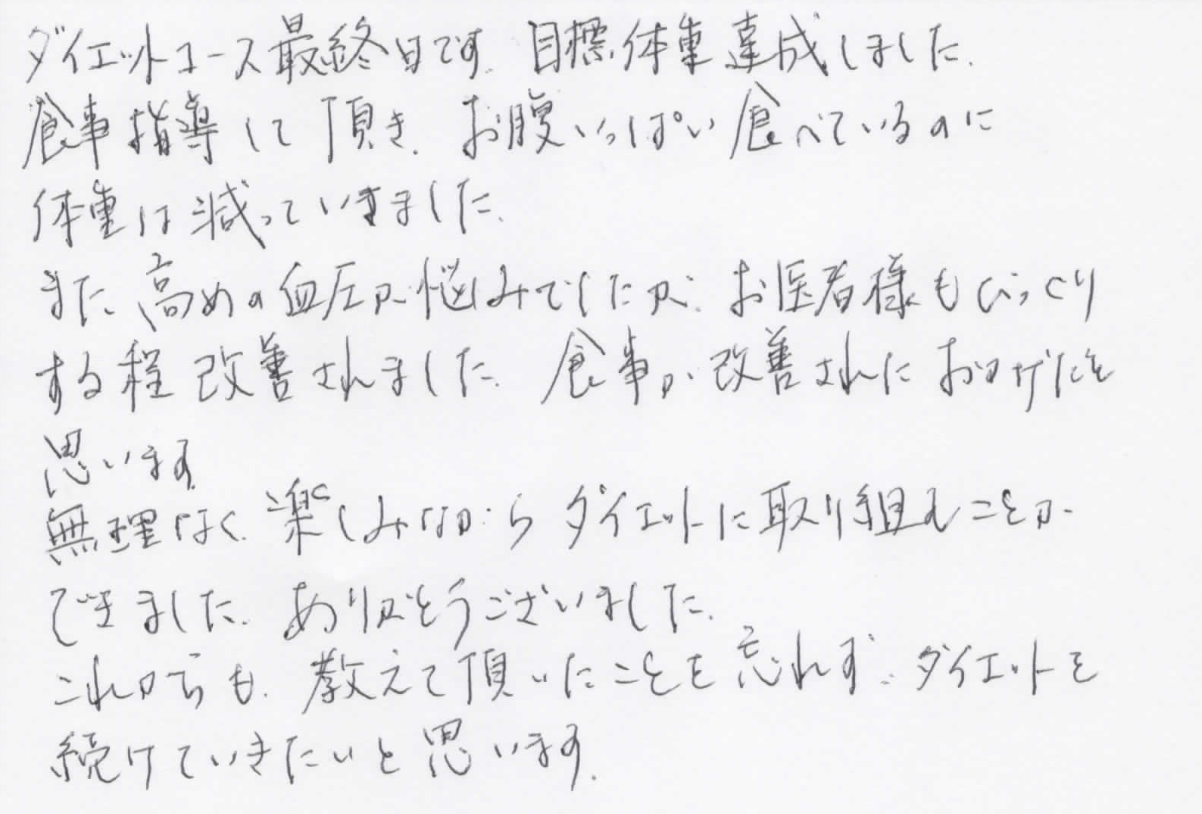 ダイエットコース最終日です。目標体重達成しました。
食事指導して頂き、お腹いっぱい食べているのに
体重は減っていきました。
また、高めの血圧が悩みでしたが、お医者様もびっくり
する程改善されました。食事が改善されたおかげだと
思います。
無理なく、楽しみながらダイエットに取り組むことが
できました。ありがとうございました。
これからも、教えて頂いたことを忘れず、ダイエットを
続けていきたいと思います。